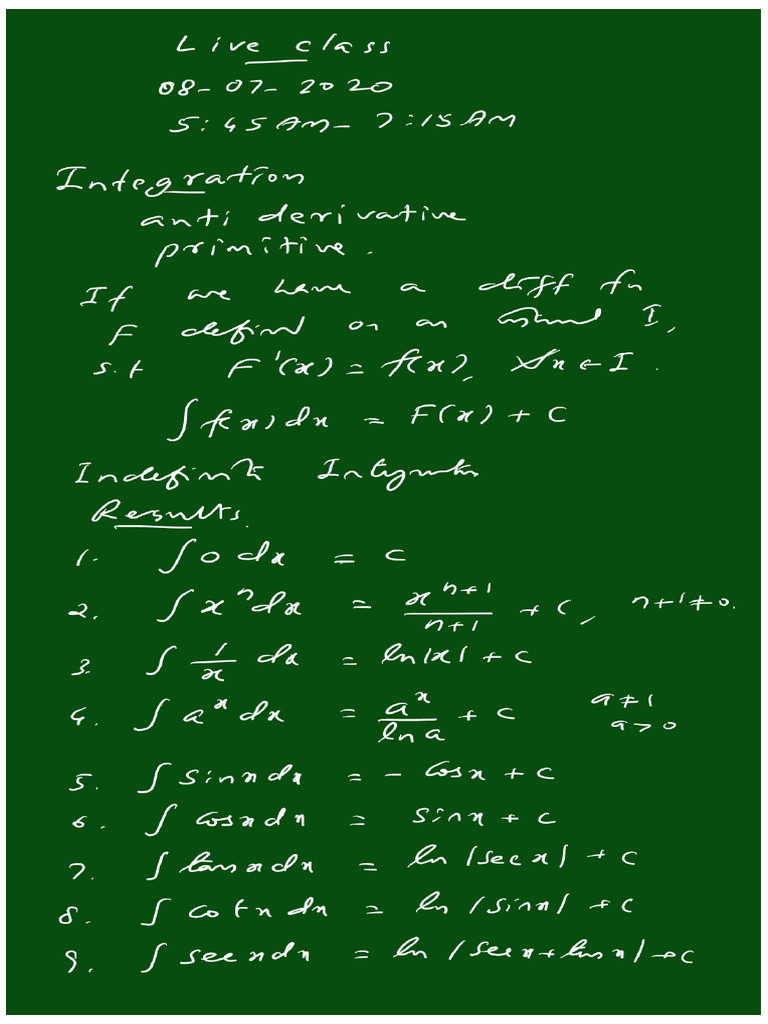 Live class
08-07-2020
5:45AM-7:15AM
Integration
anti derivative
primitive.
If we have a diff fn
F defined on an interval I,
s.t F'(x) = f(x), ∀x∈I.
∫f(x)dx = F(x) + C
Indefinite Integration
Results.
1. ∫0 dx = c
2. ∫x^n dx = x^(n+1)/(n+1) + C, n+1≠0.
3. ∫1/x dx = ln|x| + C
4. ∫a^x dx = a^x/ln a + C a≠1 a>0
5. ∫sinx dx = -cosx + C
6. ∫cosx dx = sinx + C
7. ∫tanx dx = ln|secx| + C
8. ∫cotx dx = ln|sinx| + C
9. ∫secx dx = ln|secx+tanx| + C